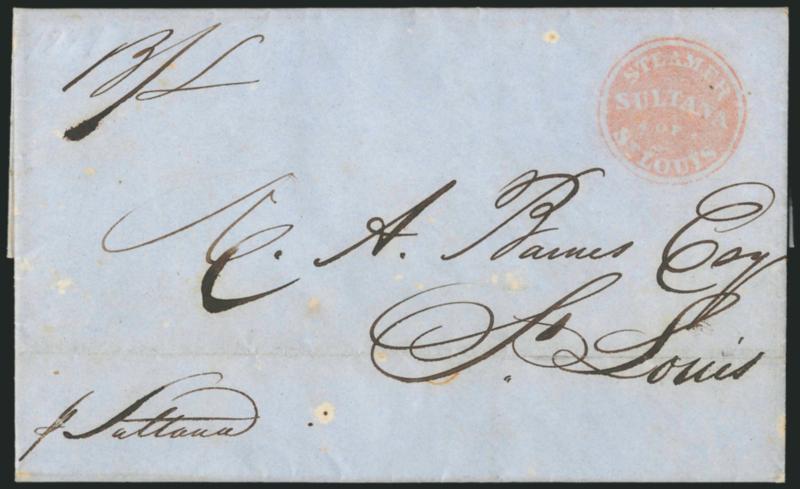 B/L
STEAMER
SULTANA
OF
ST LOUIS
C. A. Barnes Esq
St. Louis
p Sultana